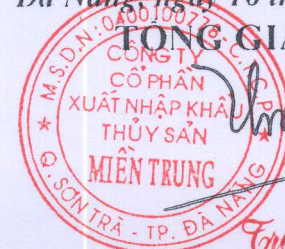 Đà Nẵng, ngày 16
TỔNG GIÁ
M.S.D.N:0400100778-C.T.C.P
CÔNG TY
CỔ PHẦN
XUẤT NHẬP KHẨU
THỦY SẢN
MIỀN TRUNG
Q. SƠN TRÀ - TP. ĐÀ NẴNG